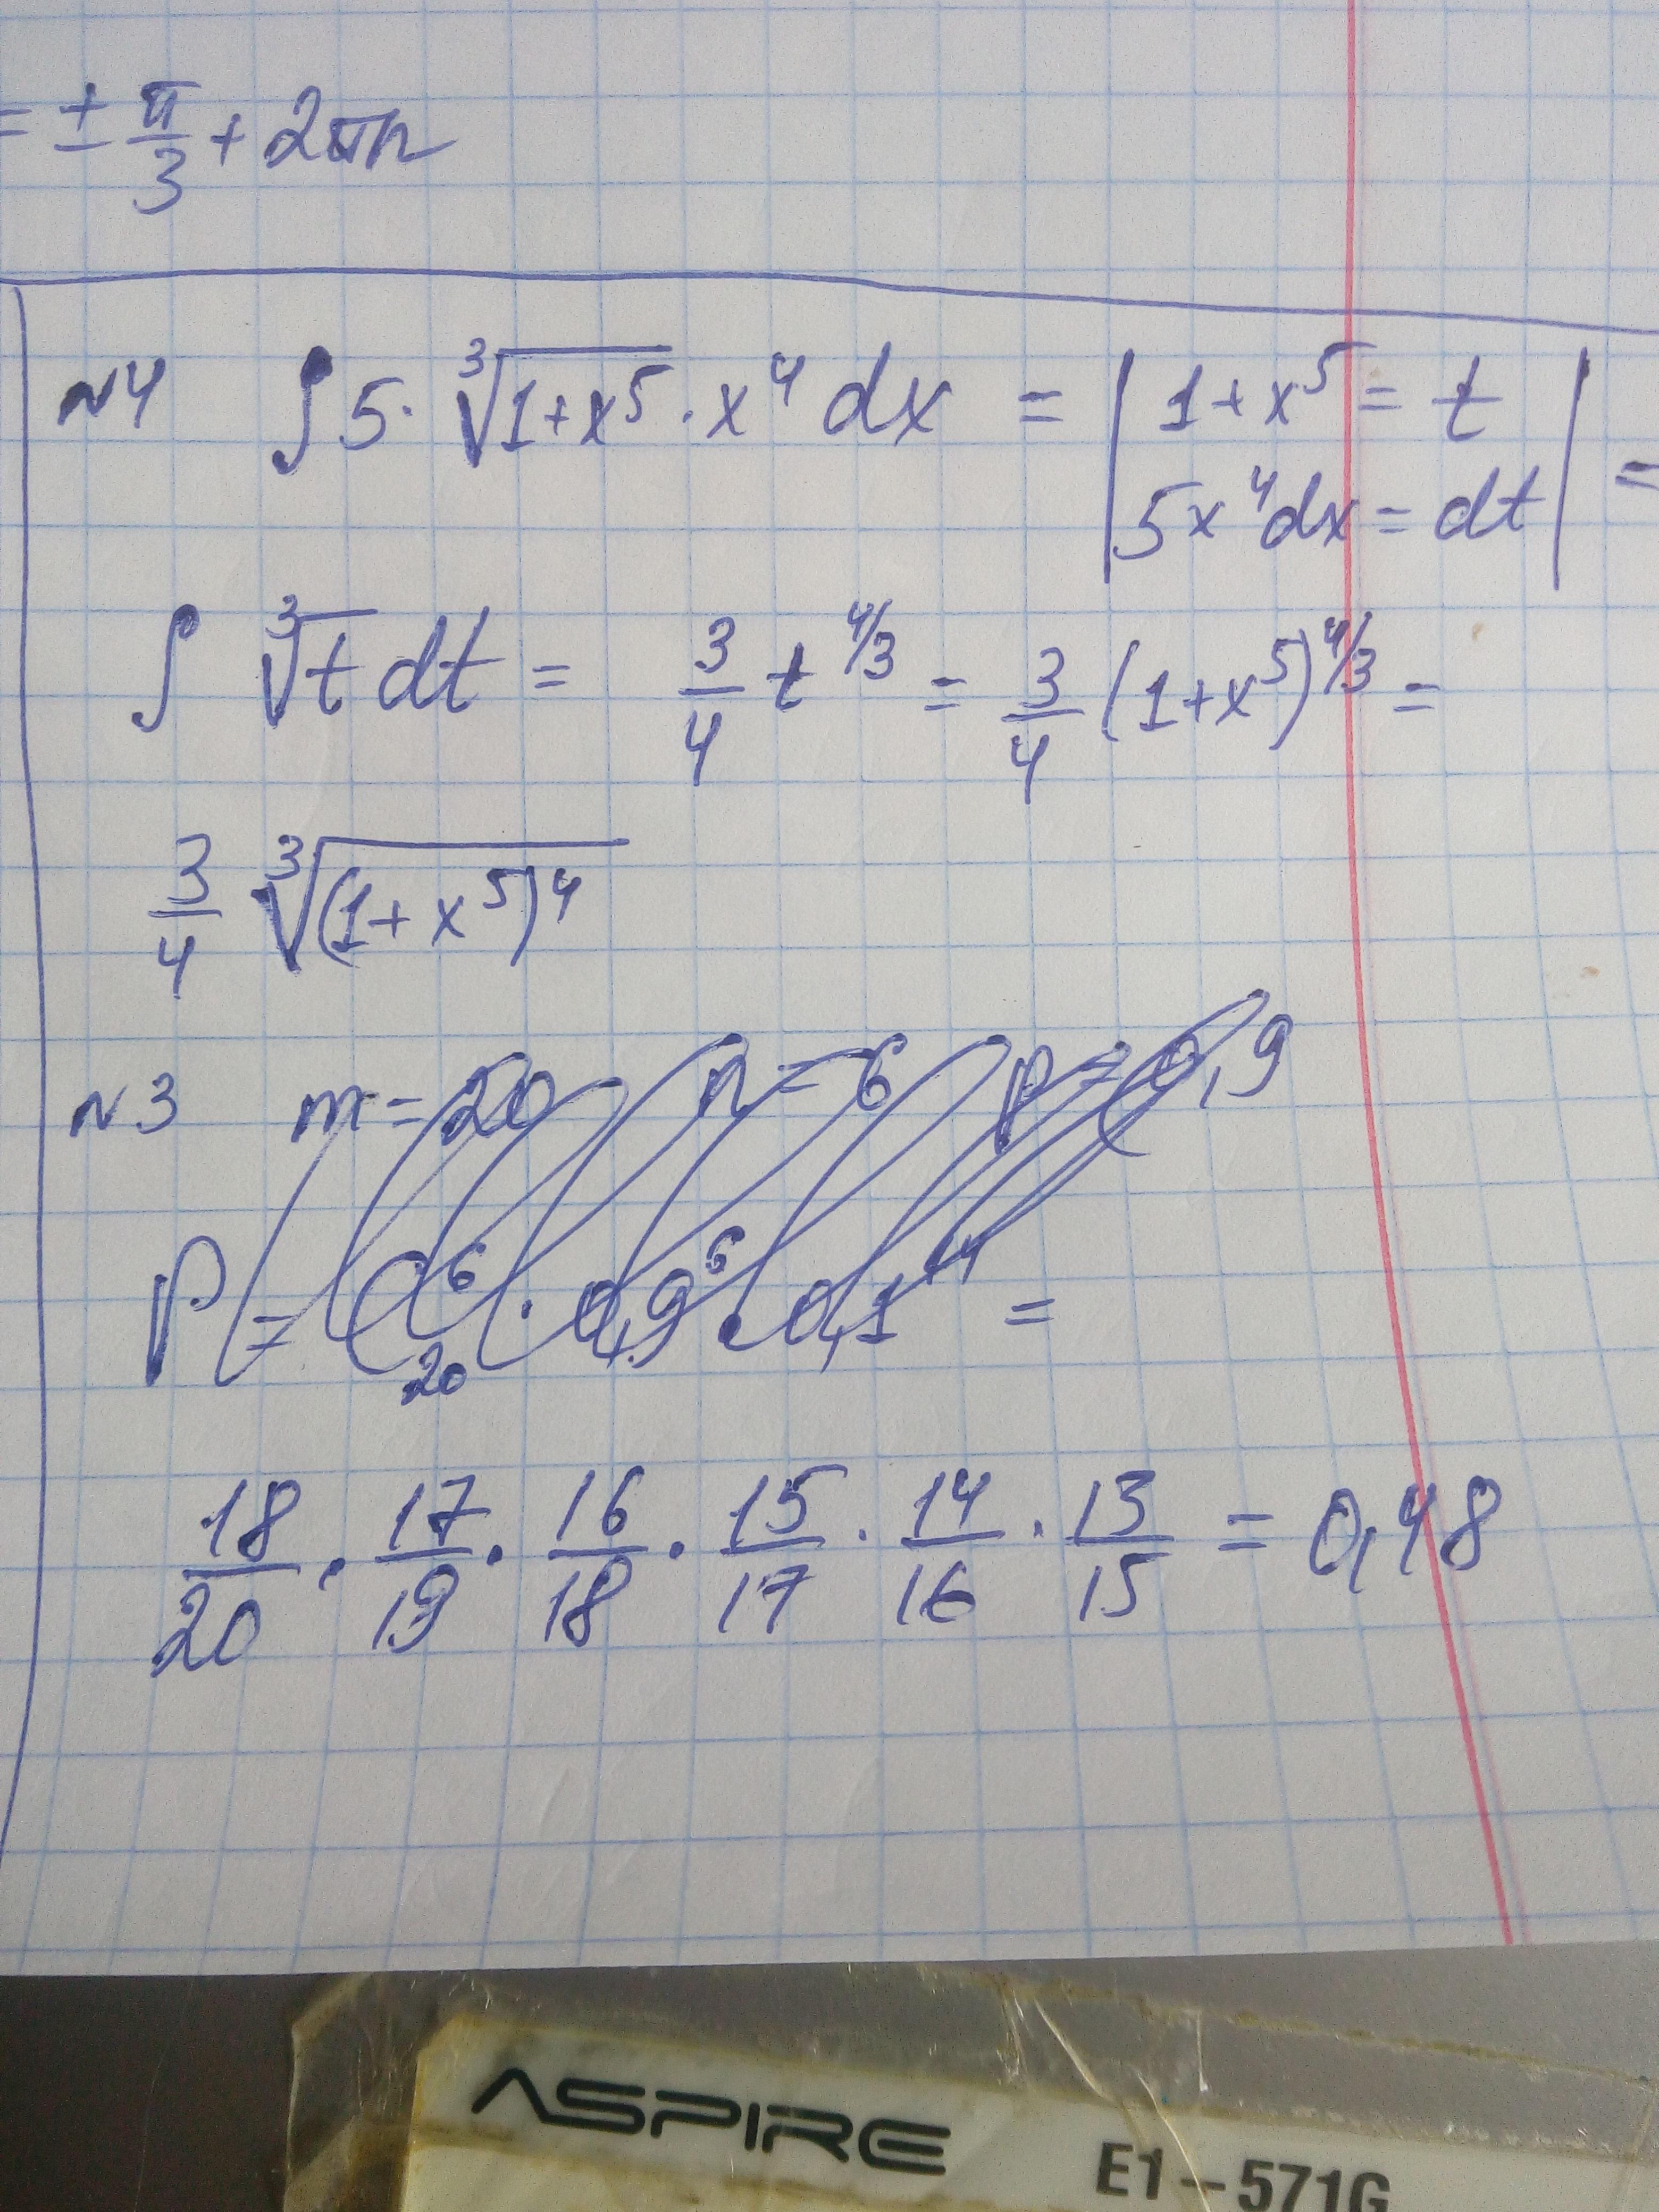 = ± π/3 + 2πn
N4 ∫ 5 · ∛(1+x⁵) · x⁴ dx = | 1+x⁵ = t
5x⁴dx = dt | =
∫ ∛t dt = 3/4 t^(4/3) = 3/4 (1+x⁵)^(4/3) =
3/4 ∛((1+x⁵)⁴)
N3 m = 20 n = 6 p = 0,9
P = C₂₀⁶ · 0,9⁶ · 0,1¹⁴ =
18/20 · 17/19 · 16/18 · 15/17 · 14/16 · 13/15 = 0,48
ASPIRE
E1-571G